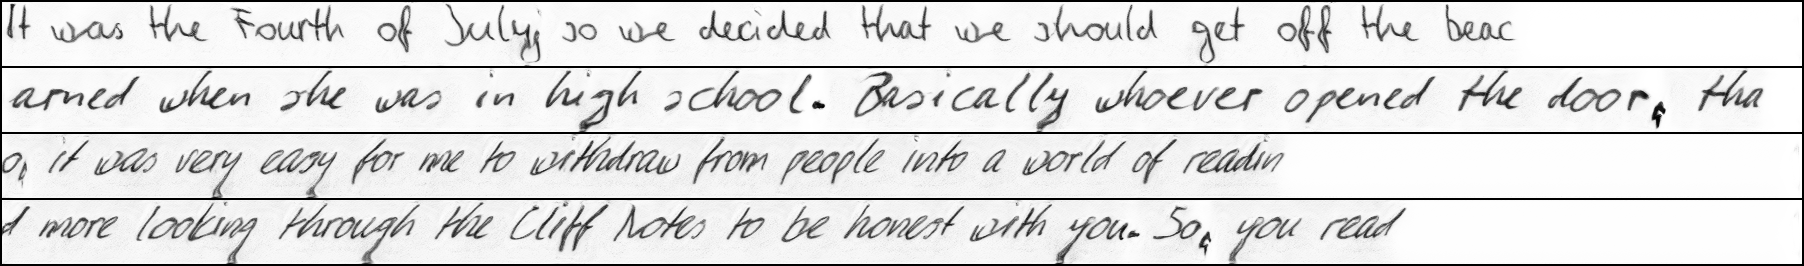 It was the Fourth of July, so we decided that we should get off the beac
arned when she was in high school. Basically whoever opened the door, tha
o, it was very easy for me to withdraw from people into a world of readin
d more looking through the Cliff Notes to be honest with you. So, you read